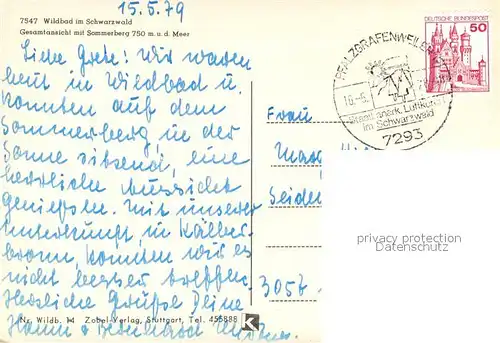 15.5.79
7547 Wildbad im Schwarzwald
Gesamtansicht mit Sommerberg 750 m. u. d. Meer
Liebe Grete! Wir waren
heut in Wildbad u.
konnten auf dem
Sommerberg, in der
Sonne sitzend, eine
herrliche Aussicht
genießen. Mit unserer
Unterkunft, in Kälber-
bronn, konnten wir es
nicht besser treffen.
Herzliche Grüße Deine
Hanni &
Nr. Wildb. 14 Zobel-Verlag, Stuttgart, Tel. 455888 K
DEUTSCHE BUNDESPOST
50
PFALZGRAFENWEILER
16.-5.
Staatl. anerk. Luftkurort
im Schwarzwald
7293
Frau
Seiden
3057
privacy protection
Datenschutz